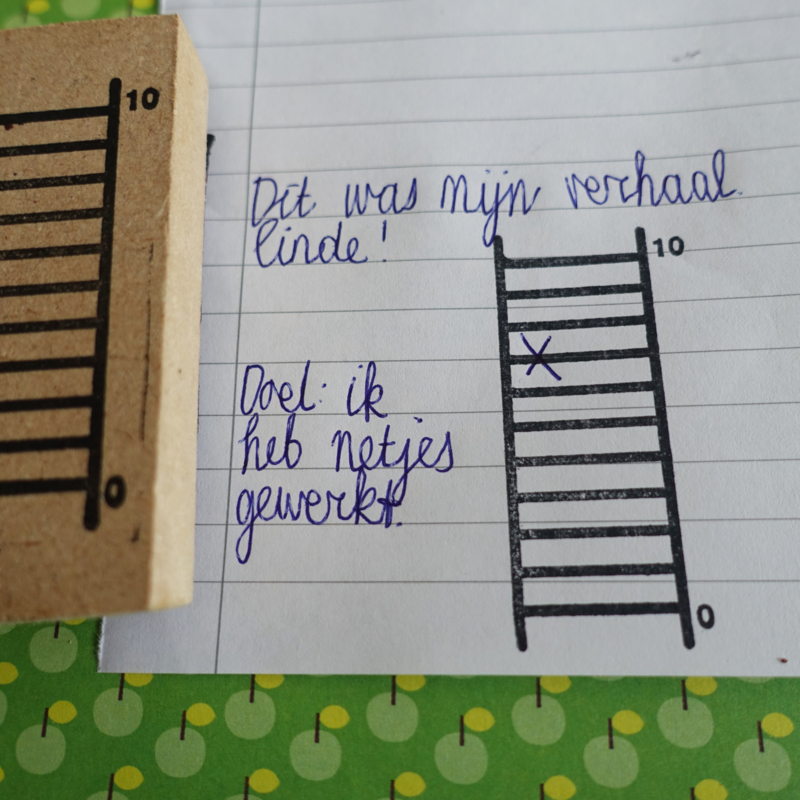 10
0
Dit was mijn verhaal.
linde!
10
Doel: ik
heb netjes
gewerkt.
0